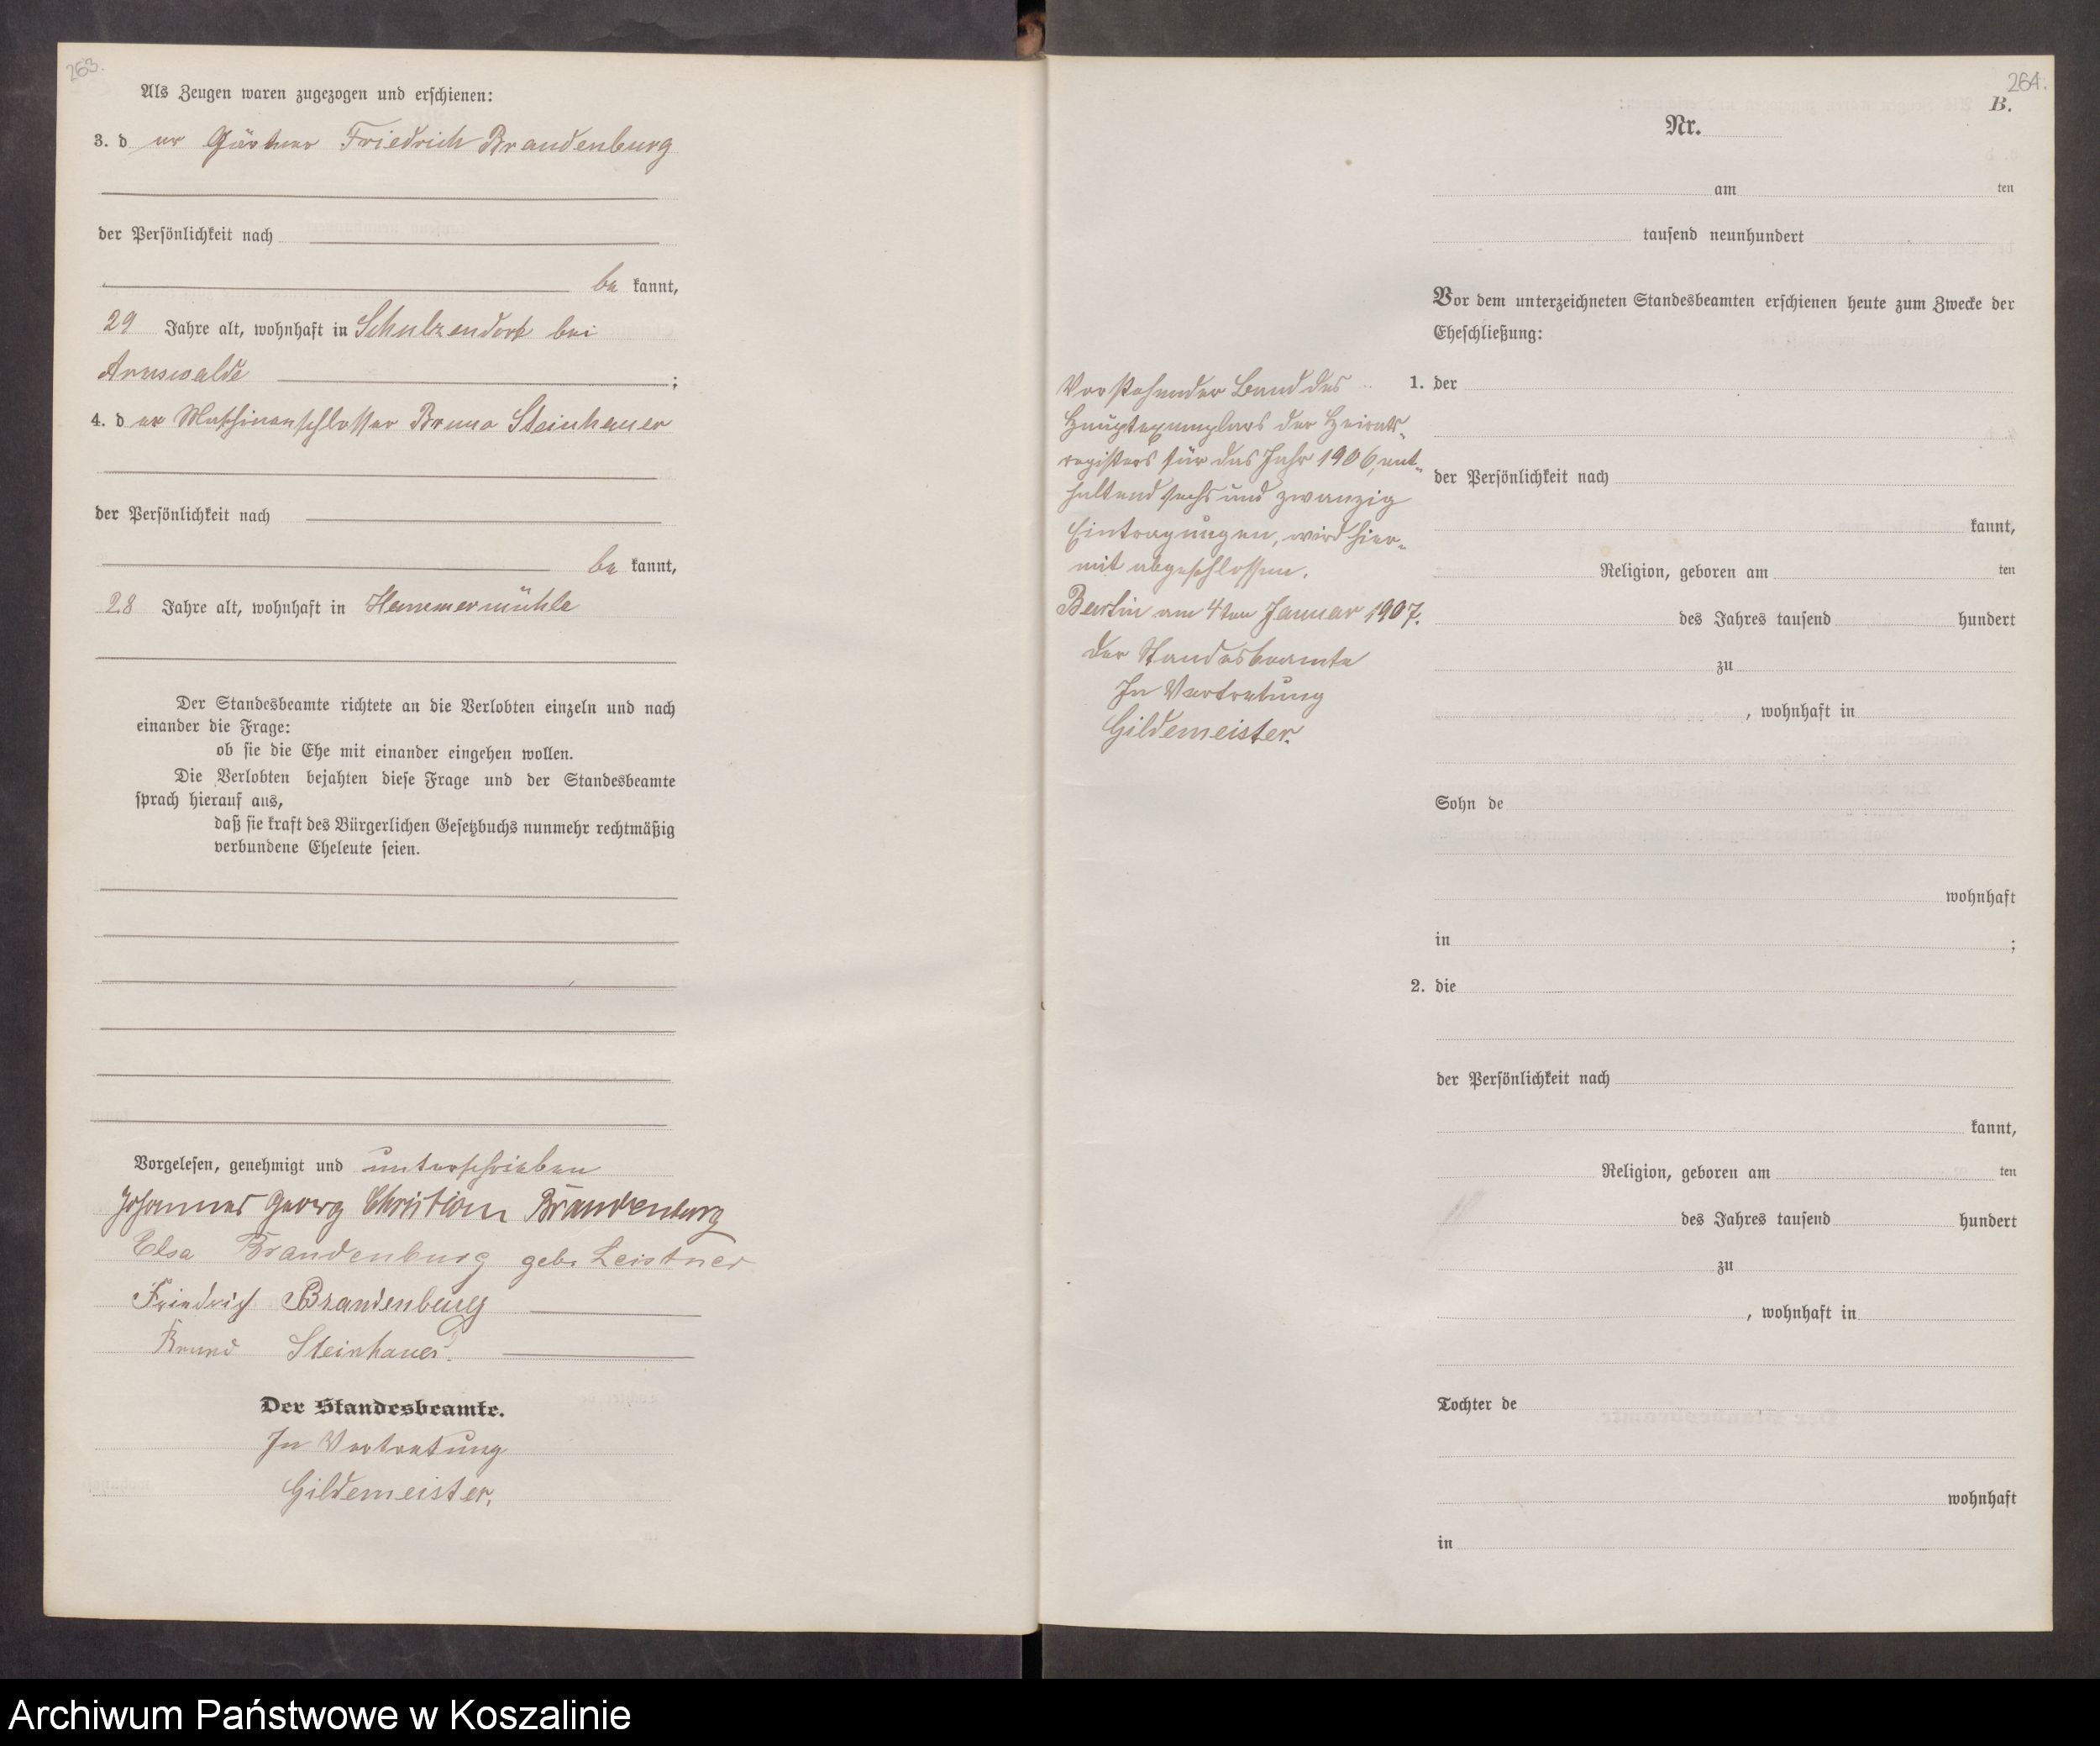 263.
Als Zeugen waren zugezogen und erschienen:
3. d er Gärtner Friedrich Brandenburg
der Persönlichkeit nach
be kannt,
29 Jahre alt, wohnhaft in Schulzendorf bei
Arnswalde ;
4. d er Maschinenschlosser Bruno Steinhauer
der Persönlichkeit nach
be kannt,
28 Jahre alt, wohnhaft in Hammermühle
Der Standesbeamte richtete an die Verlobten einzeln und nach
einander die Frage:
ob sie die Ehe mit einander eingehen wollen.
Die Verlobten bejahten diese Frage und der Standesbeamte
sprach hierauf aus,
daß sie kraft des Bürgerlichen Gesetzbuchs nunmehr rechtmäßig
verbundene Eheleute seien.
Vorgelesen, genehmigt und unterschrieben
Johannes Georg Christian Brandenburg
Elsa Brandenburg geb. Leistner
Friedrich Brandenburg
Bruno Steinhauer.
Der Standesbeamte.
In Vertretung
Gildemeister.
264.
B.
Nr.
am ten
tausend neunhundert
Vor dem unterzeichneten Standesbeamten erschienen heute zum Zwecke der
Eheschließung:
Vorstehender Band des
Hauptexemplars der Heirats-
registers für das Jahr 1906, ent-
haltend sechs und zwanzig
Eintragungen, wird hier-
mit abgeschlossen.
am 4ten Januar 1907.
Der Standesbeamte
In Vertretung
Gildemeister.
1. der
der Persönlichkeit nach
kannt,
Religion, geboren am ten
des Jahres tausend hundert
zu
, wohnhaft in
Sohn de
wohnhaft
in ;
2. die
der Persönlichkeit nach
kannt,
Religion, geboren am ten
des Jahres tausend hundert
zu
, wohnhaft in
Tochter de
wohnhaft
in
Archiwum Państwowe w Koszalinie